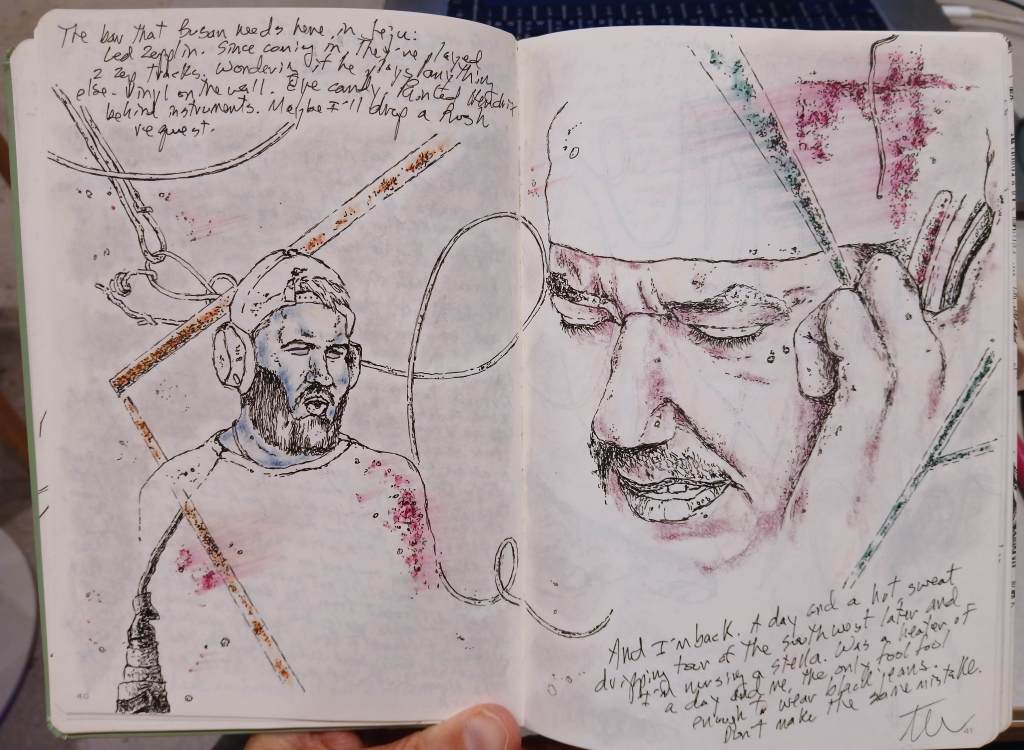 The bar that Busan needs here in Jeju:
Led Zepplin. Since coming in, they've played
2 Zep tracks. Wondering if he plays anything
else. Vinyl on the wall. Eye candy. Painted Hendrix
behind instruments. Maybe I'll drop a Rush
request.
And I'm back. A day and a hot, sweat
dripping tour of the southwest later and
I'm nursing a stella. Was a heater of
a day and me, the only fool fool
enough to wear black jeans.
Don't make the same mistake.
40
41